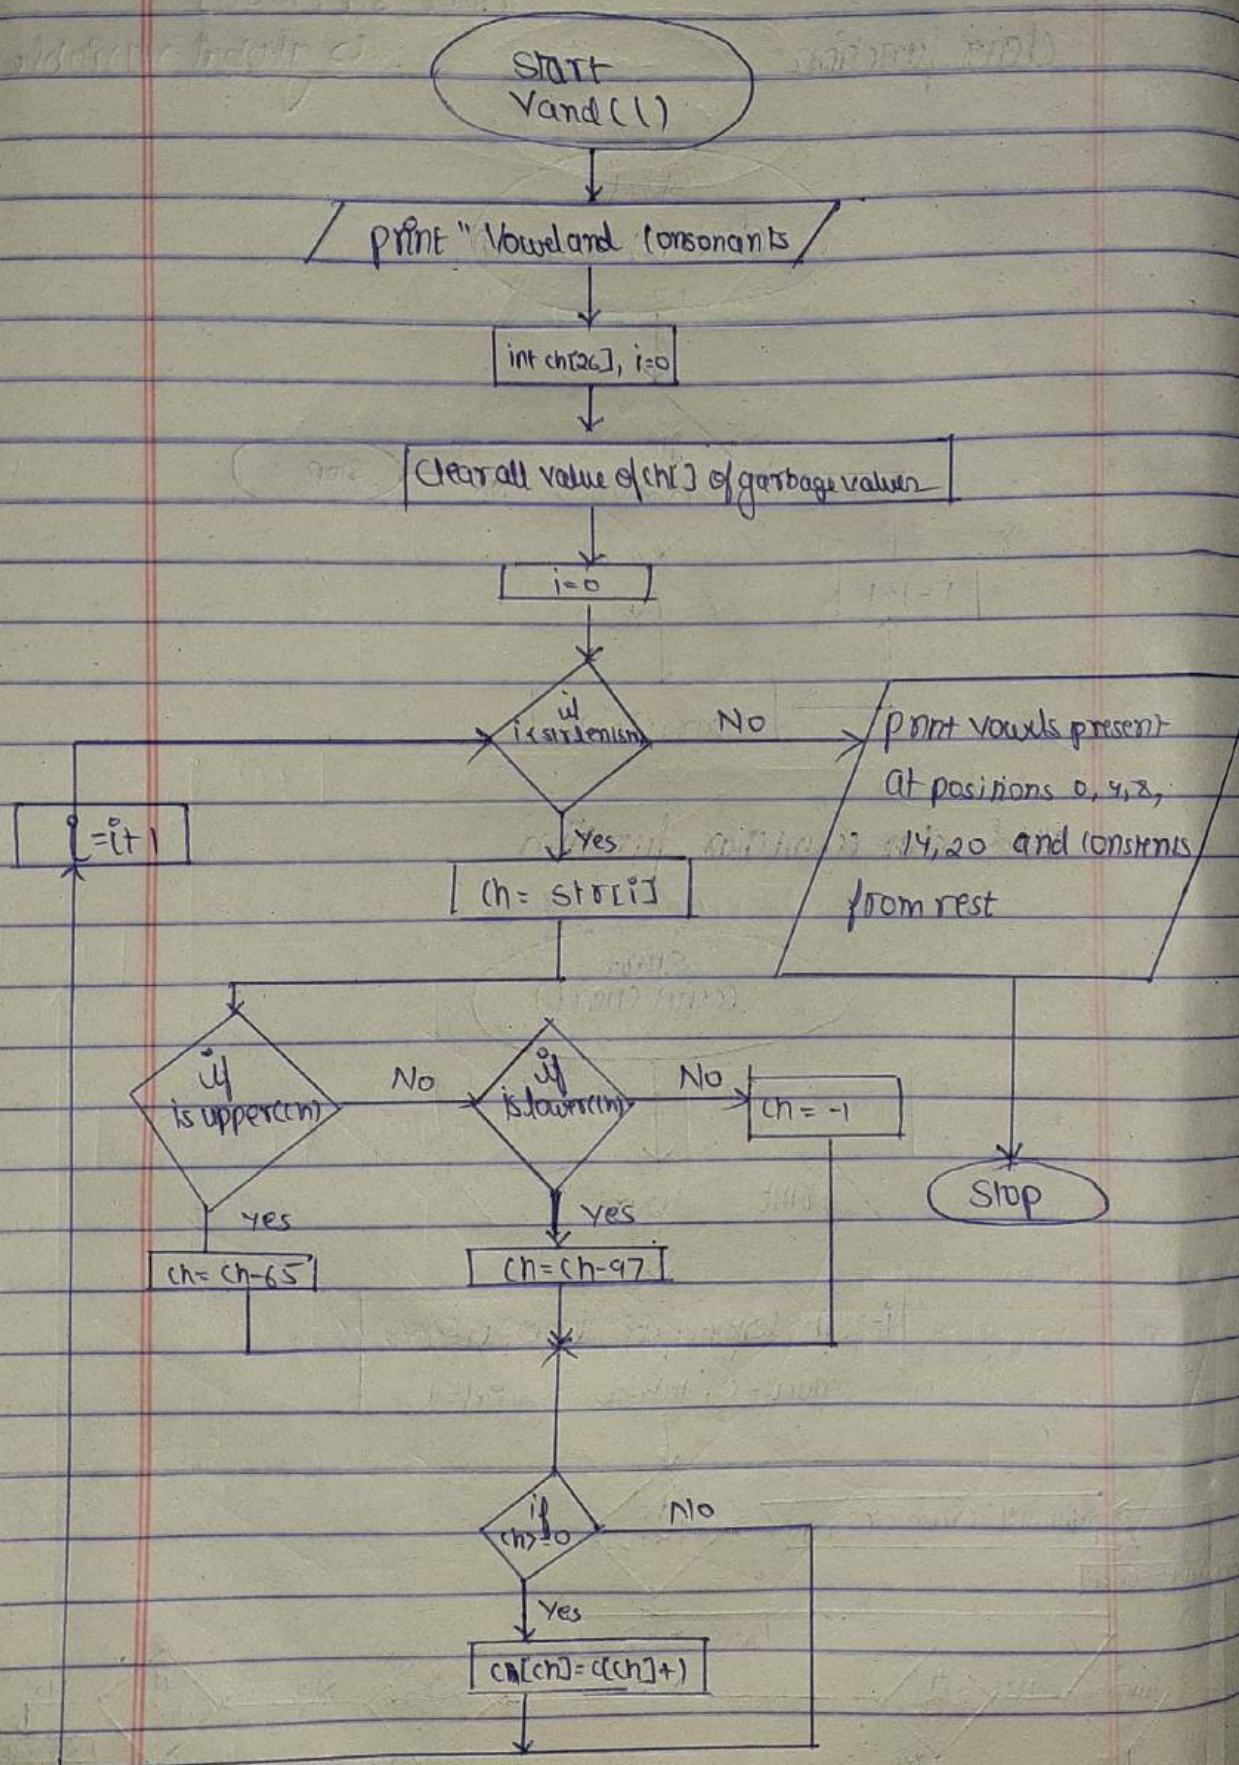 Start
Vand(()
print "Vowel and Consonants
int ch[26], i=0
Clear all value of ch[] of garbage values
i=0
if
No
print vowels present
at positions 0, 4, 8,
14, 20 and
from rest
i=i+1
Yes
Ch = str[i]
if
is upper(ch)
No
if
is lower(ch)
No
Ch = -1
Stop
yes
yes
Ch= Ch-65
Ch=Ch-97
if
Ch>=0
No
Yes